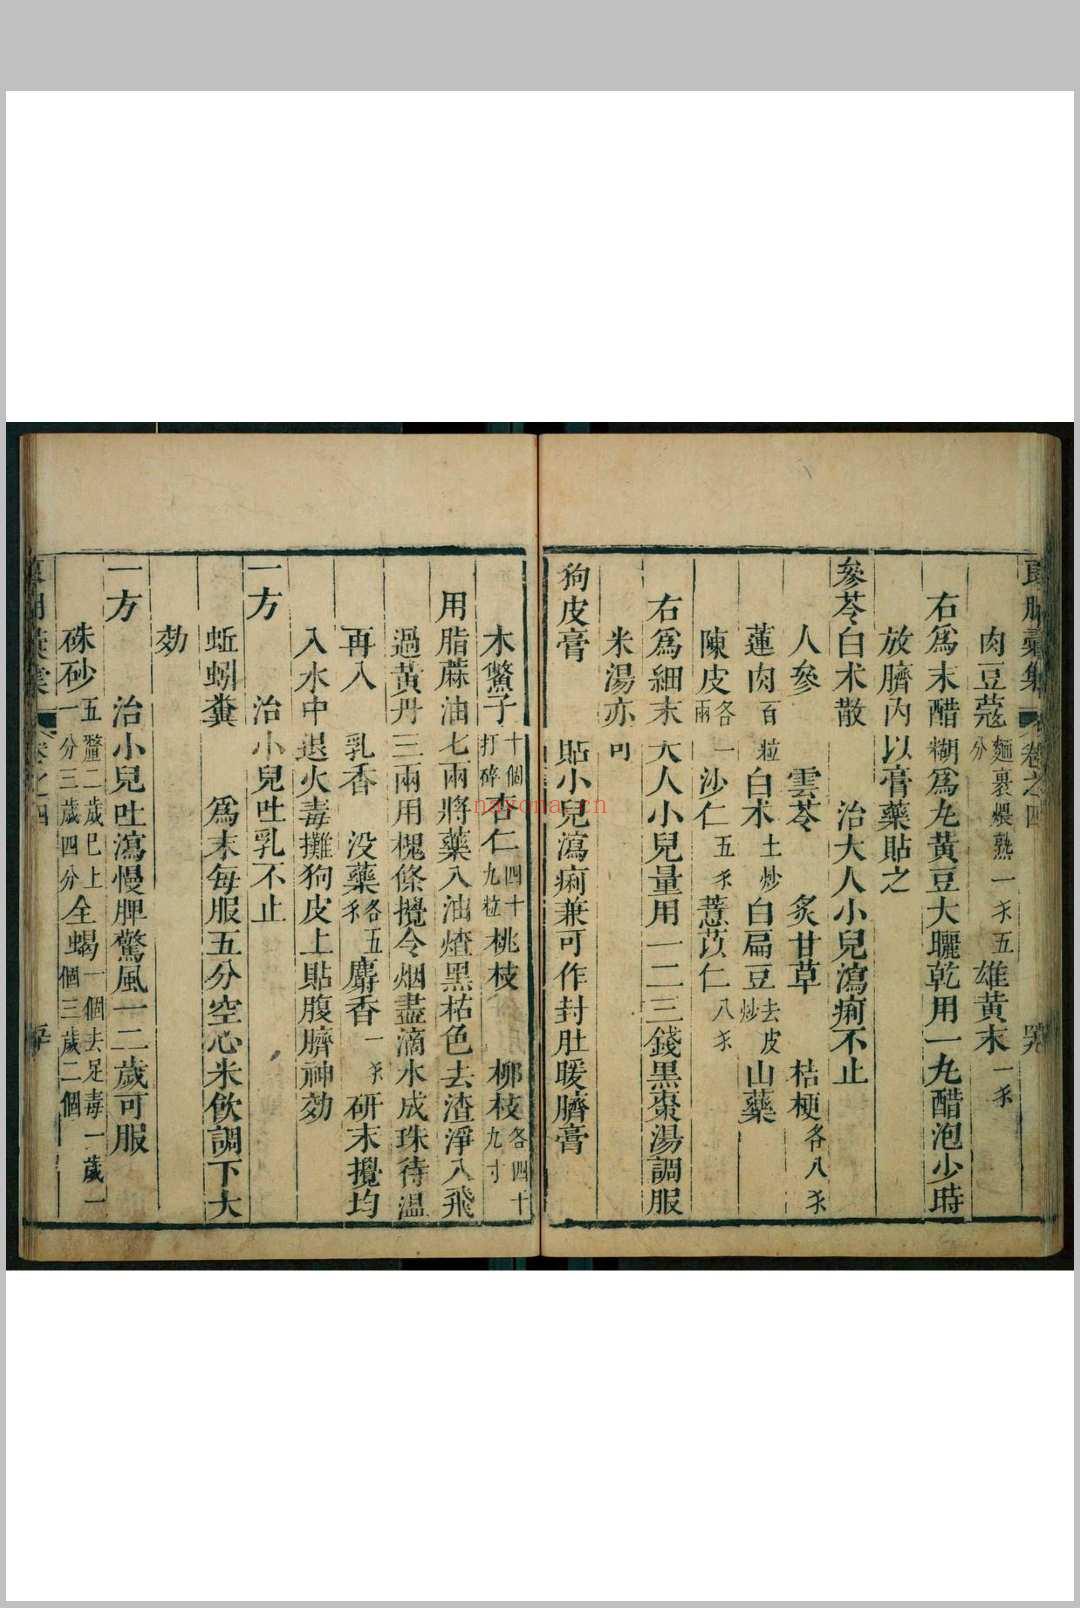 良朋彙集 卷之四
肉豆蔻麵裹煨熟一錢五分 雄黃末一錢
右爲末醋糊爲丸黃豆大曬乾用一丸醋泡少時
放臍內以膏藥貼之
參苓白朮散 治大人小兒瀉痢不止
人參 雲苓 炙甘草 桔梗各八錢
蓮肉百粒 白朮土炒 白扁豆去皮炒 山藥
陳皮各一兩 沙仁五錢 薏苡仁八錢
右爲細末大人小兒量用一二三錢黑棗湯調服
米湯亦可
狗皮膏 貼小兒瀉痢兼可作封肚暖臍膏
木鱉子十個打碎 杏仁四十九粒 桃枝 柳枝各四十九寸
用脂蔴油七兩將藥入油煠黑枯色去渣淨入飛
過黃丹三兩用槐條攪令烟盡滴水成珠待溫
再入 乳香 没藥各五錢 麝香一錢 研末攪均
入水中退火毒攤狗皮上貼腹臍神効
一方 治小兒吐乳不止
蚯蚓糞 爲末每服五分空心米飲調下大
効
一方 治小兒吐瀉慢脾驚風一二歲可服
硃砂五釐二歲巳上一分三歲四分 全蝎一個去足毒一歲一個三歲二個
卷之四
nayona.cn